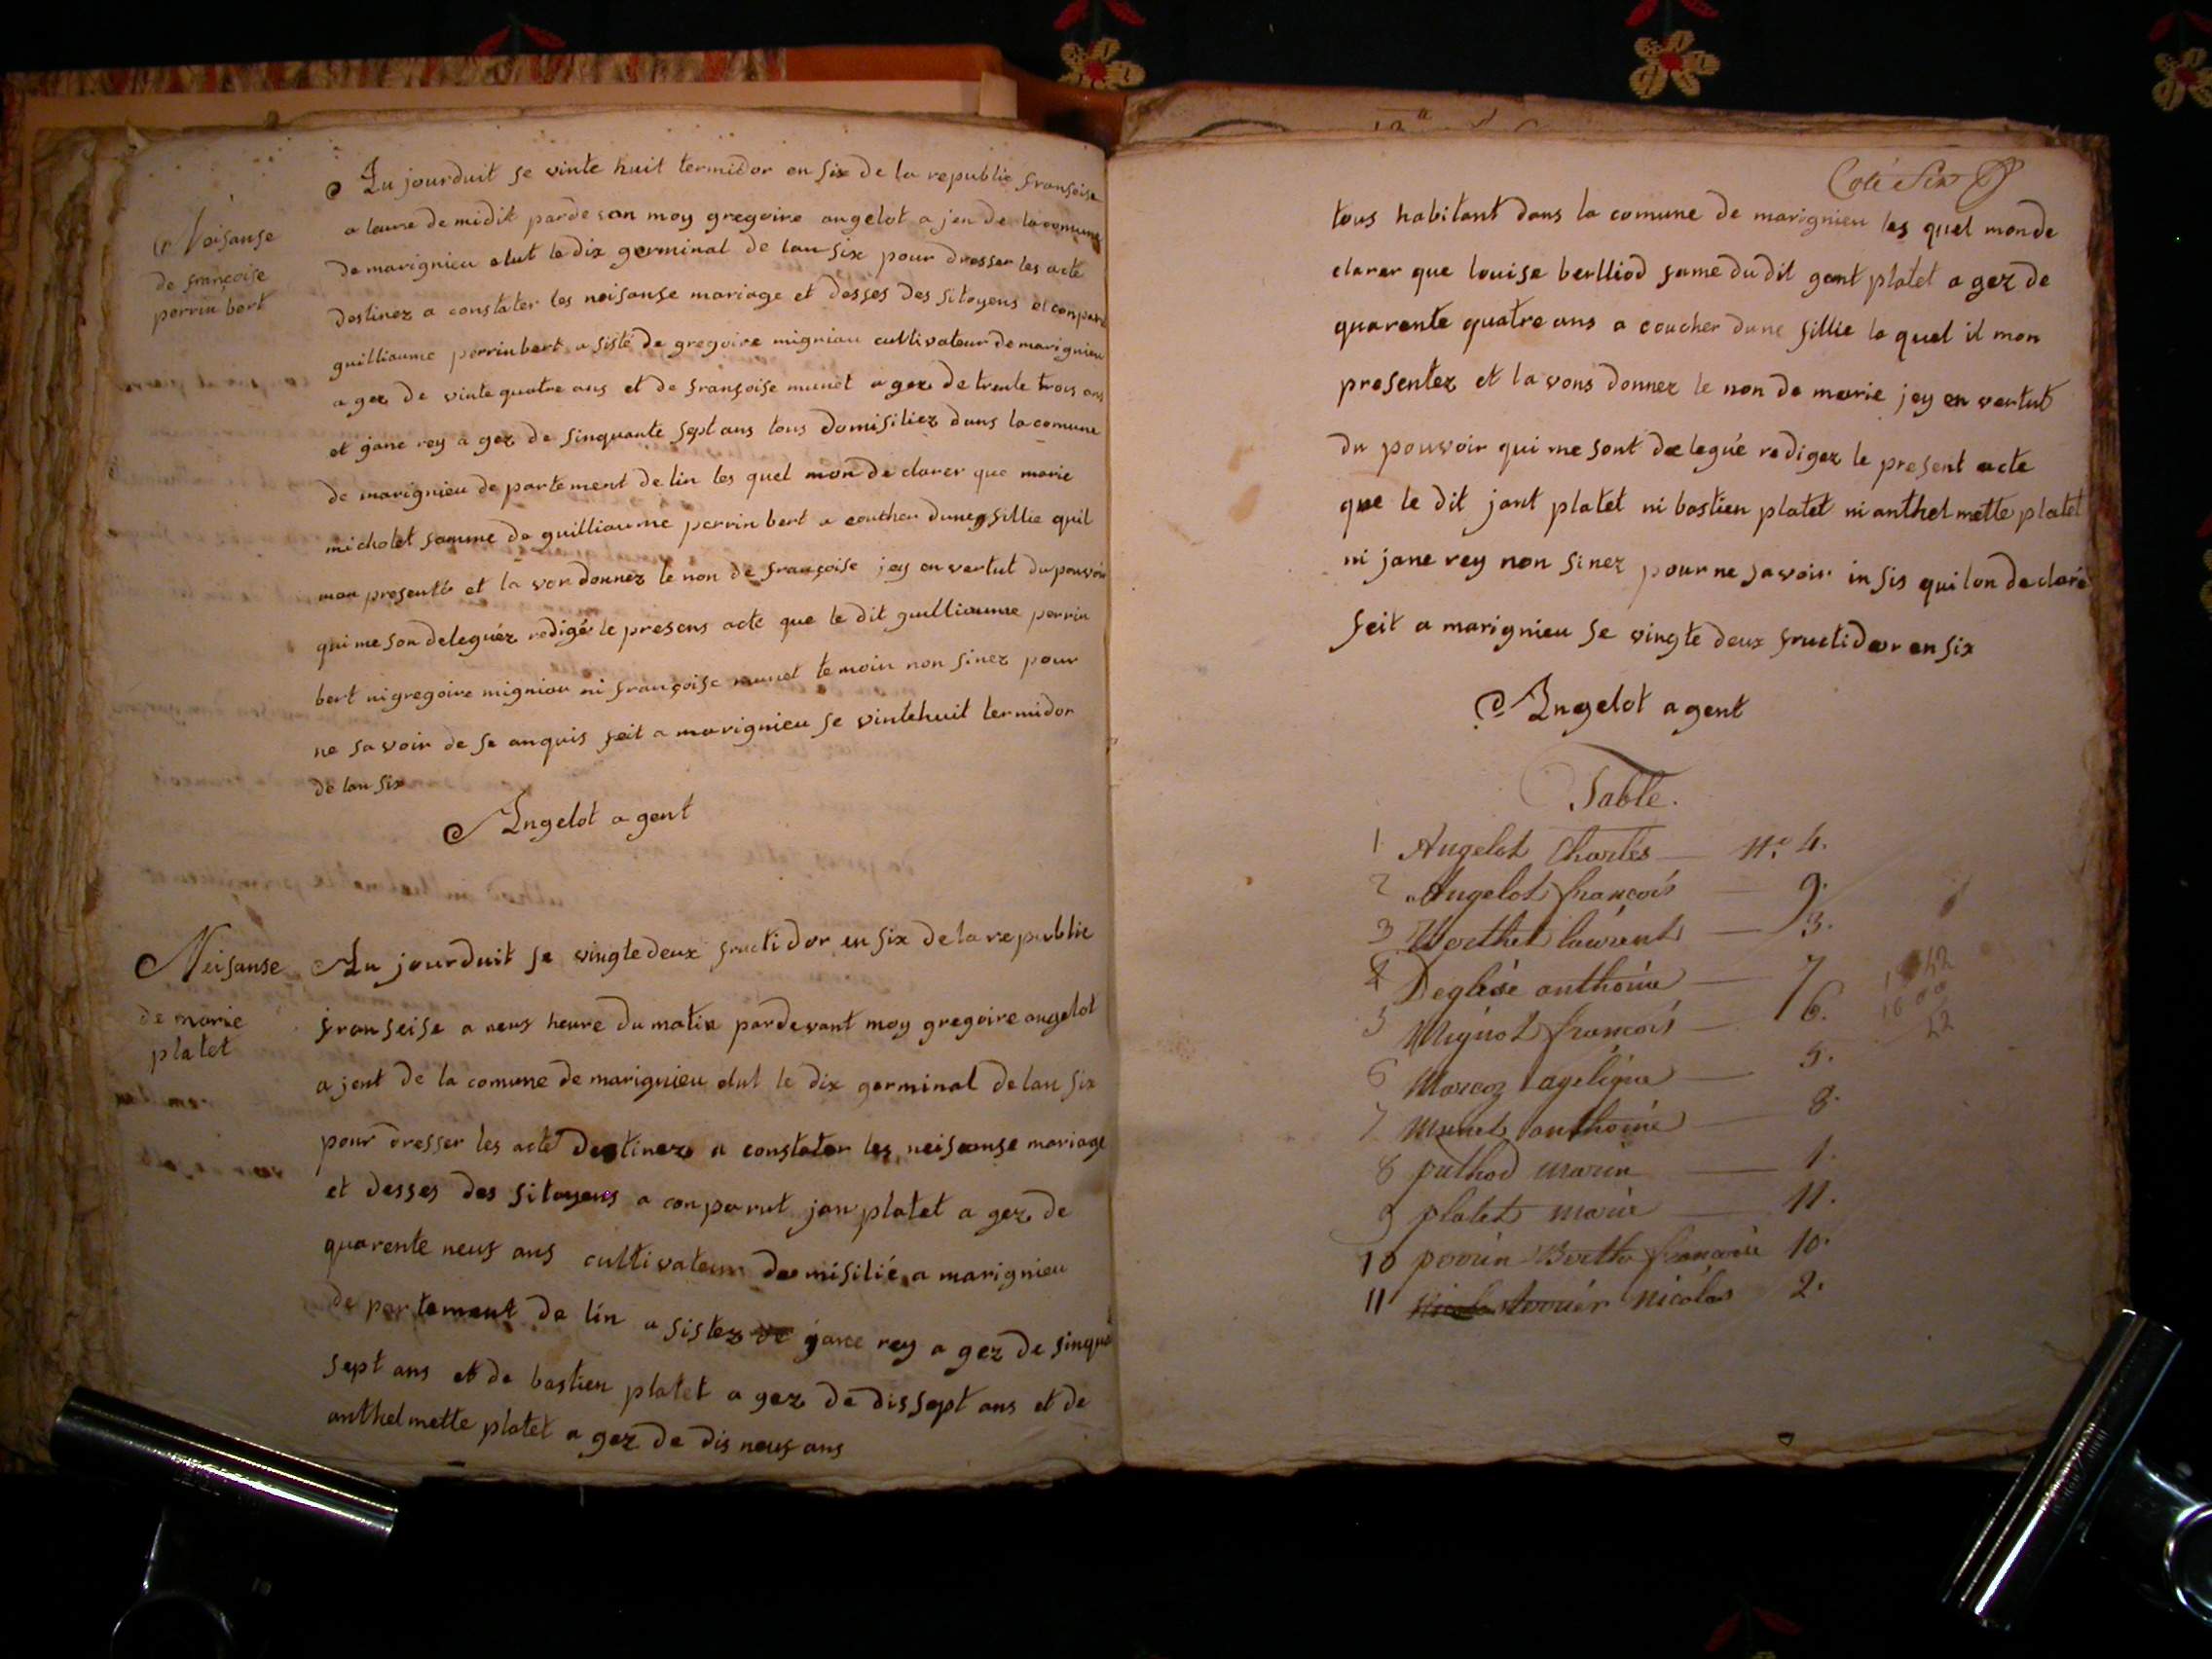 Noisanse
de françoise
perrin bert
Au jourduit se vinte huit termidor en six de la republic franseise
a leure de midit parde van moy gregoire angelot a jen de la comune
de marignieu elut le dix germinal de lan six pour dresser les acte
destinez a constater les noisanse mariage et desses des sitoyens et conparu
guilliaume perrin bert a sisté de gregoire migniau cultivateur de marignieu
a gez de vinte quatre ans et de françoise munet a gez de trente trois ans
et jane rey a gez de sinquante sept ans tous domisiliez dans la comune
de marignieu de partement de lin les quel mon de clarer que marie
micholet famme de guilliaume perrin bert a coucher dune fillie quil
mon presenté et la von donnez le non de françoise jey en vertut du pouvoir
qui me son deleguéz redigé le presens acte que le dit guilliaume perrin
bert ni gregoire migniau ni françoise munet temoin non sinez pour
ne savoir de se anquis feit a marignieu se vintehuit termidor
de lan six
Angelot agent
Neisanse
de marie
platet
Au jourduit se vingte deux fructidor en six de la republic
franseise a neuf heure du matin pardevant moy gregoire angelot
a jent de la comune de marignieu elut le dix germinal de lan six
pour dresser les acte destinez a constater les neisanse mariage
et desses des sitoyens a conparut jan platet a gez de
quarente neuf ans cultivateur domisilié a marignieu
de partement de lin a sistez jane rey a gez de sinqua
sept ans et de bastien platet a gez de dis sept ans et de
anthelmette platet a gez de dis neuf ans
Coté Six
tous habitant dans la comune de marignieu les quel monde
clarer que louise berlliod fame du dit gent platet a gez de
quarente quatre ans a coucher dune fillie la quel il mon
presentez et la vons donnez le non de marie jey en vertut
du pouvoir qui me sont delegué redigez le present acte
que le dit jant platet ni bastien platet ni anthelmette platet
ni jane rey non sinez pour ne savoir in sis qui lon declaré
feit a marignieu se vingte deux fructidor en six
Angelot agent
Table.
1 Angelot Charles — n.º 4.
2 Angelot françois — 9.
3 Berthet laurent — 3.
4 Deglise anthoine — 7
5 Mignot françois — 6.
6 Marcoz — 5.
7 Munet anthoine — 8.
8 puthod marin — 1.
9 platet marie — 11.
10 perrin Berth françoise 10.
11 terrier nicolas 2.